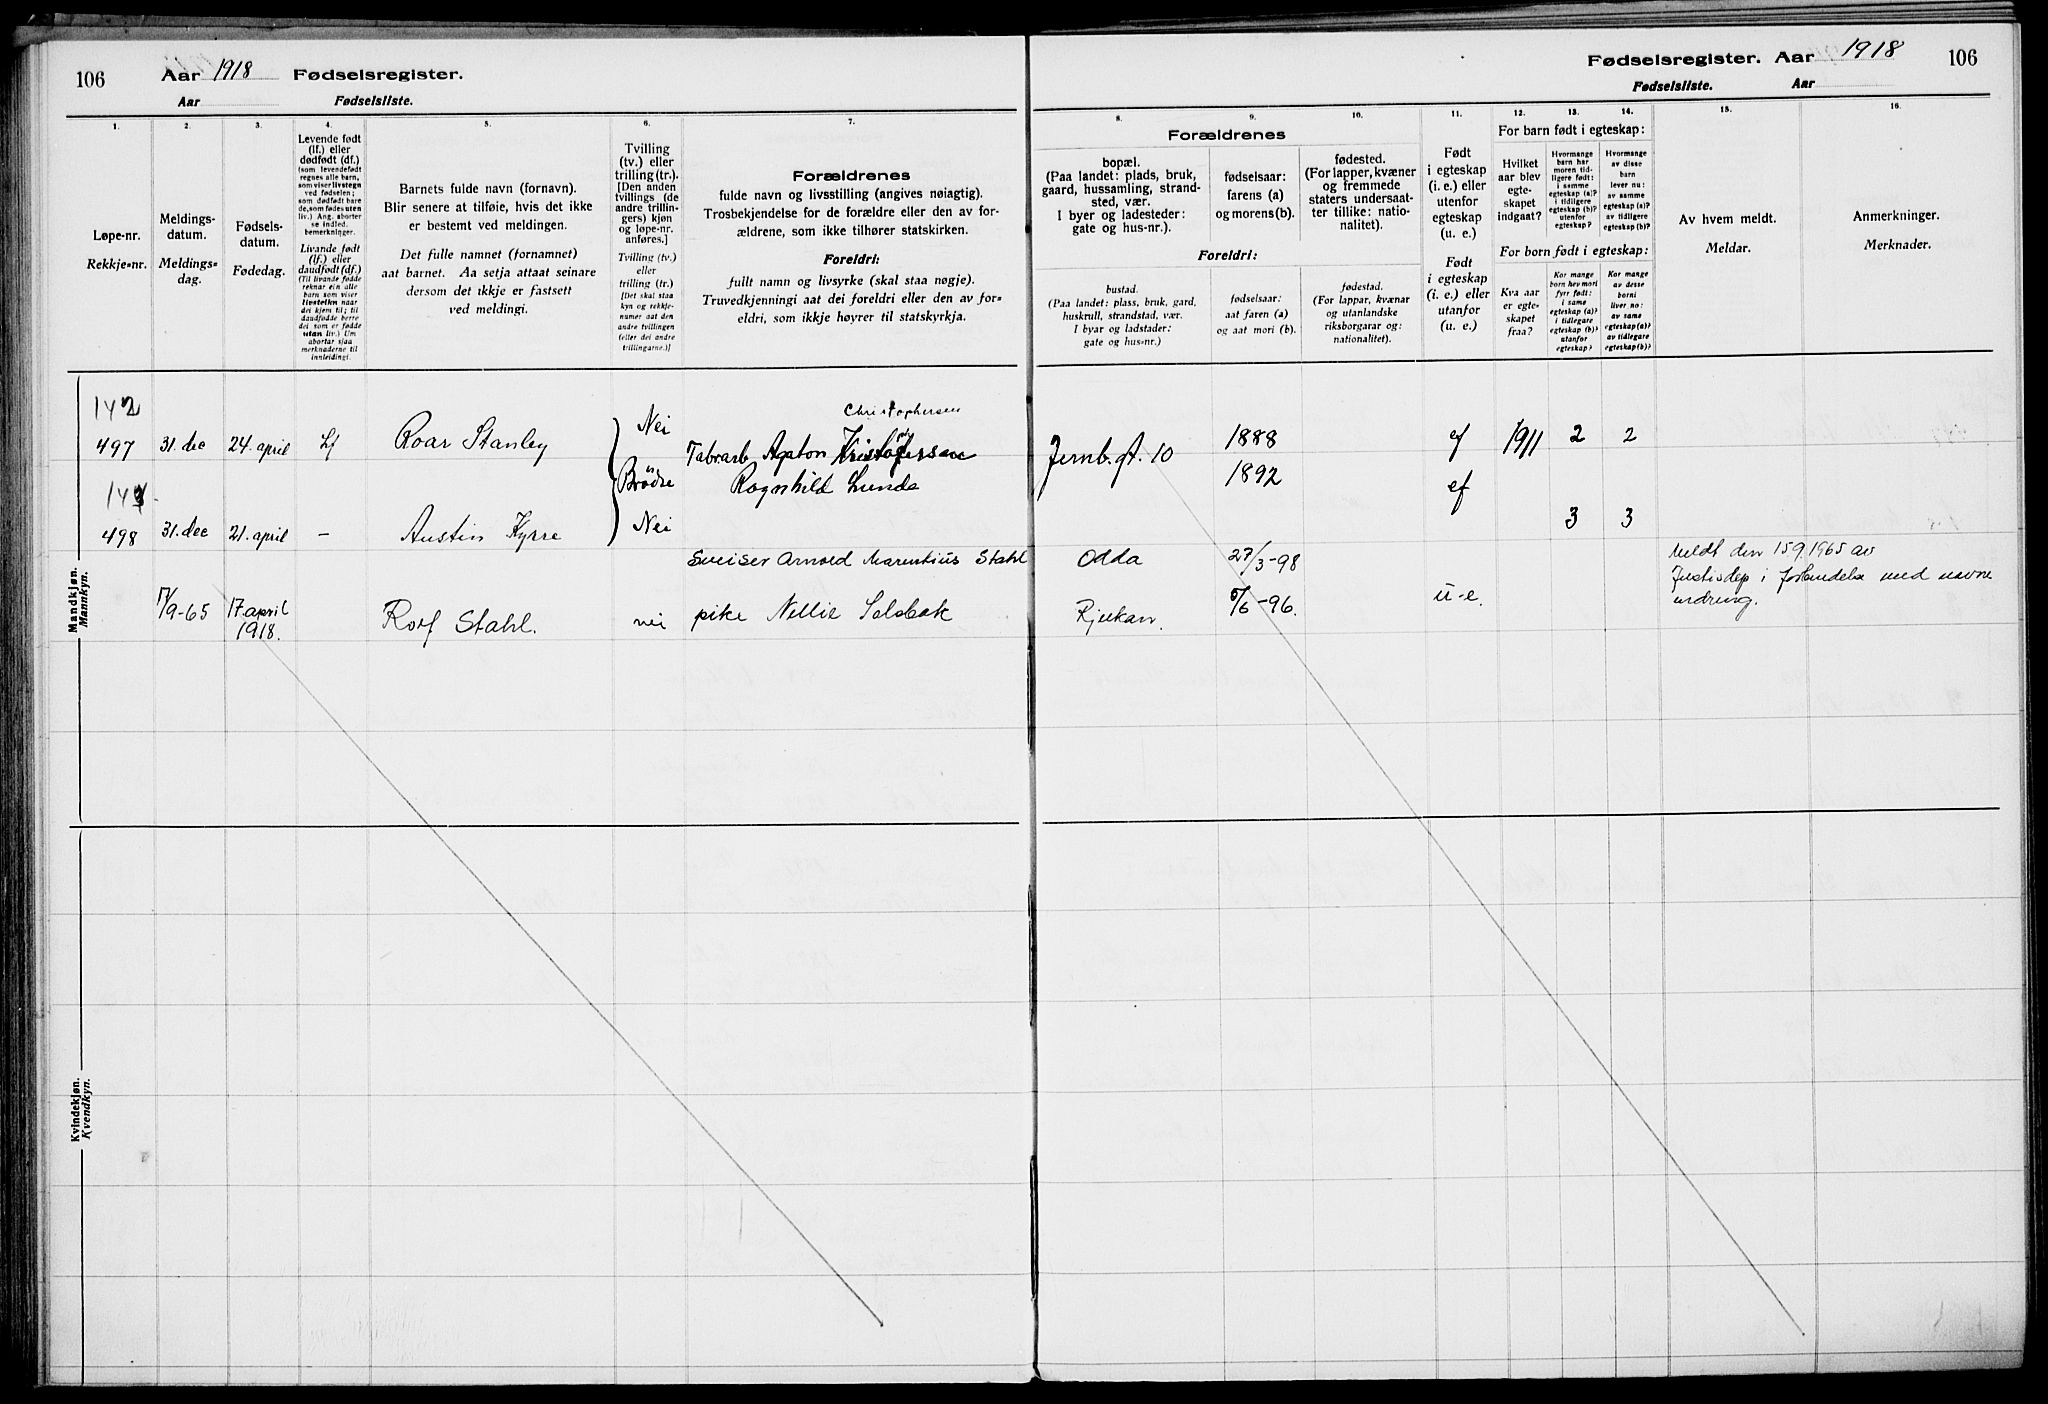 106 Aar 1918 Fødselsregister.
Aar Fødselsliste.
Fødselsregister. Aar 1918 106
Fødselsliste. Aar
1.
Løpe-nr.
Rekkje-nr.
2.
Meldings-
datum.
Meldings-
dag.
3.
Fødsels-
datum.
Fødedag.
4.
Levende født
(lf.) eller
dødfødt (df.)
(som levendefødt
regnes alle barn,
som viser livstegn
ved fødselen;
som dødfødt bare
de, som fødes uten
liv.) Ang. aborter
se indled.
bemerkninger.
Livande født
(lf.) eller
daudfødt (df.)
(Til livande fødde
reknar ein alle
born som viser
livsteikn naar
dei kjem til; til
daudfødde berre
dei som er fødde
utan liv.) Um
abortar sjaa
merknaderne til
innleidingi.
5.
Barnets fulde navn (fornavn).
Blir senere at tilføie, hvis det ikke
er bestemt ved meldingen.
Det fulle namnet (fornamnet)
aat barnet. Aa setja attaat seinare
dersom det ikkje er fastsett
ved meldingi.
6.
Tvilling
(tv.) eller
trilling (tr.).
[Den anden
tvillings (de
andre trillin-
gers) kjøn
og løpe-nr.
anføres.]
Tvilling (tv.)
eller
trilling (tr.)
[Det skal staa
kyn og rekkje-
numer aat den
andre tvillingen
(eller dei andre
trillingarne.)]
7.
Forældrenes
fulde navn og livsstilling (angives nøiagtig).
Trosbekjendelse for de forældre eller den av for-
ældrene, som ikke tilhører statskirken.
Foreldri:
fullt namn og livsyrke (skal staa nøgje).
Truvedkjenningi aat dei foreldri eller den av for-
eldri, som ikkje høyrer til statskyrkja.
Forældrenes
8.
bopæl.
(Paa landet: plads, bruk,
gaard, hussamling, strand-
sted, vær.
I byer og ladesteder:
gate og hus-nr.).
9.
fødselsaar:
farens (a)
og morens (b).
10.
fødested.
(For lapper, kvæner
og fremmede
staters undersaat-
ter tillike: natio-
nalitet).
Foreldri:
bustad.
(Paa landet: plass, bruk, gard,
huskrull, strandstad, vær.
I byar og ladstader:
gate og hus-nr.)
fødselsaar:
aat faren (a)
og aat mori (b).
fødestad.
(For lappar, kvænar
og utanlandske
riksborgarar og:
nationalitet).
11.
Født
i egteskap
(i. e.) eller
utenfor
egteskap
(u. e.)
Født
i egteskap
(i. e.) eller
utanfor
(u. e.)
For barn født i egteskap:
12.
Hvilket
aar blev
egte-
skapet
indgaat?
13.
Hvormange
barn har
moren tid-
ligere født:
i samme
egteskap (a)?
i tidligere
egteskap (b)?
utenfor
egteskap?
14.
Hvormange
av disse
barn
lever nu:
av samme
egteskap (a)?
av tidligere
egteskap (b)?
For born født i egteskap:
Kva aar
er egte-
skapet
fraa?
Kor mange
born hev mori
fyrr født:
i same
egteskap (a)?
i tidlegare
egteskap (b)?
utanfor
egteskap?
Kor mange
av desse
borni
liver no:
av same
egteskap (a)?
av tidlegare
egteskap (b)?
15.
Av hvem meldt.
Meldar.
16.
Anmerkninger.
Merknader.
Mandkjøn.
Mannkyn.
142 Nei Christophersen
497 31. dec 24. april Lf Roar Stanley Agaton Jernb. gt. 10 1888 ef 1911 2 2
Brödre Ragnhild Lunde 1892 ef
498 31. dec 21. april — Austin Kyrre Nei 3 3
Sveiser Arnold Marentius Stahl Odda 27/3-98 Meldt den 15.9.1965 av
Justisdep i forbindelse med navne
17 april 1918. Rolf Stahl. nei pike Nellie Selsbak Rjukan. 5/6-96. u-e. endring.
Kvindekjøn.
Kvendkyn.